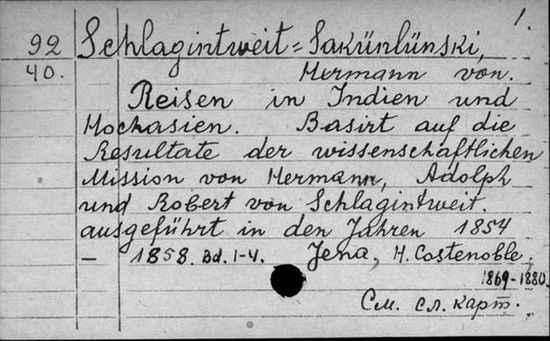 1.
92 Schlagintweit=Sakünlünski,
40. Hermann von.
Reisen in Indien und
Hochasien. Basirt auf die
Resultate der wissenschaftlichen
Mission von Hermann, Adolph
und Robert von Schlagintweit.
ausgeführt in den Jahren 1854
– 1858. Bd. 1-4. Jena, H. Costenoble.
1869-1880.
См. сл. карт.